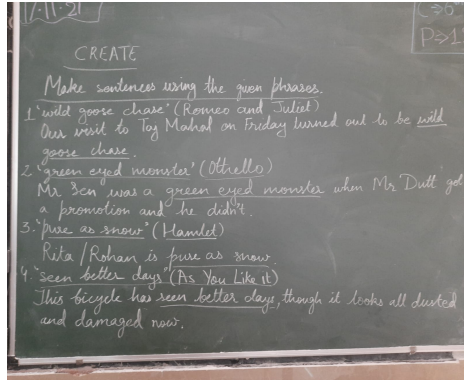 17-11-21
P⇒1
CREATE
Make sentences using the given phrases.
1. "wild goose chase" (Romeo and Juliet)
Our visit to Taj Mahal on Friday turned out to be wild
goose chase.
2. "green eyed monster" (Othrello)
Mr Sen was a green eyed monster when Mr Dutt got
a promotion and he didn't.
3. "pure as snow" (Hamlet)
Rita / Rohan is pure as snow.
4. "seen better days" (As You Like it)
This bicycle has seen better days, though it looks all dusted
and damaged now.